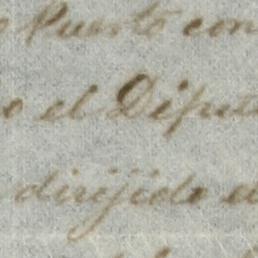 Puerto con
el Diput
dirijido